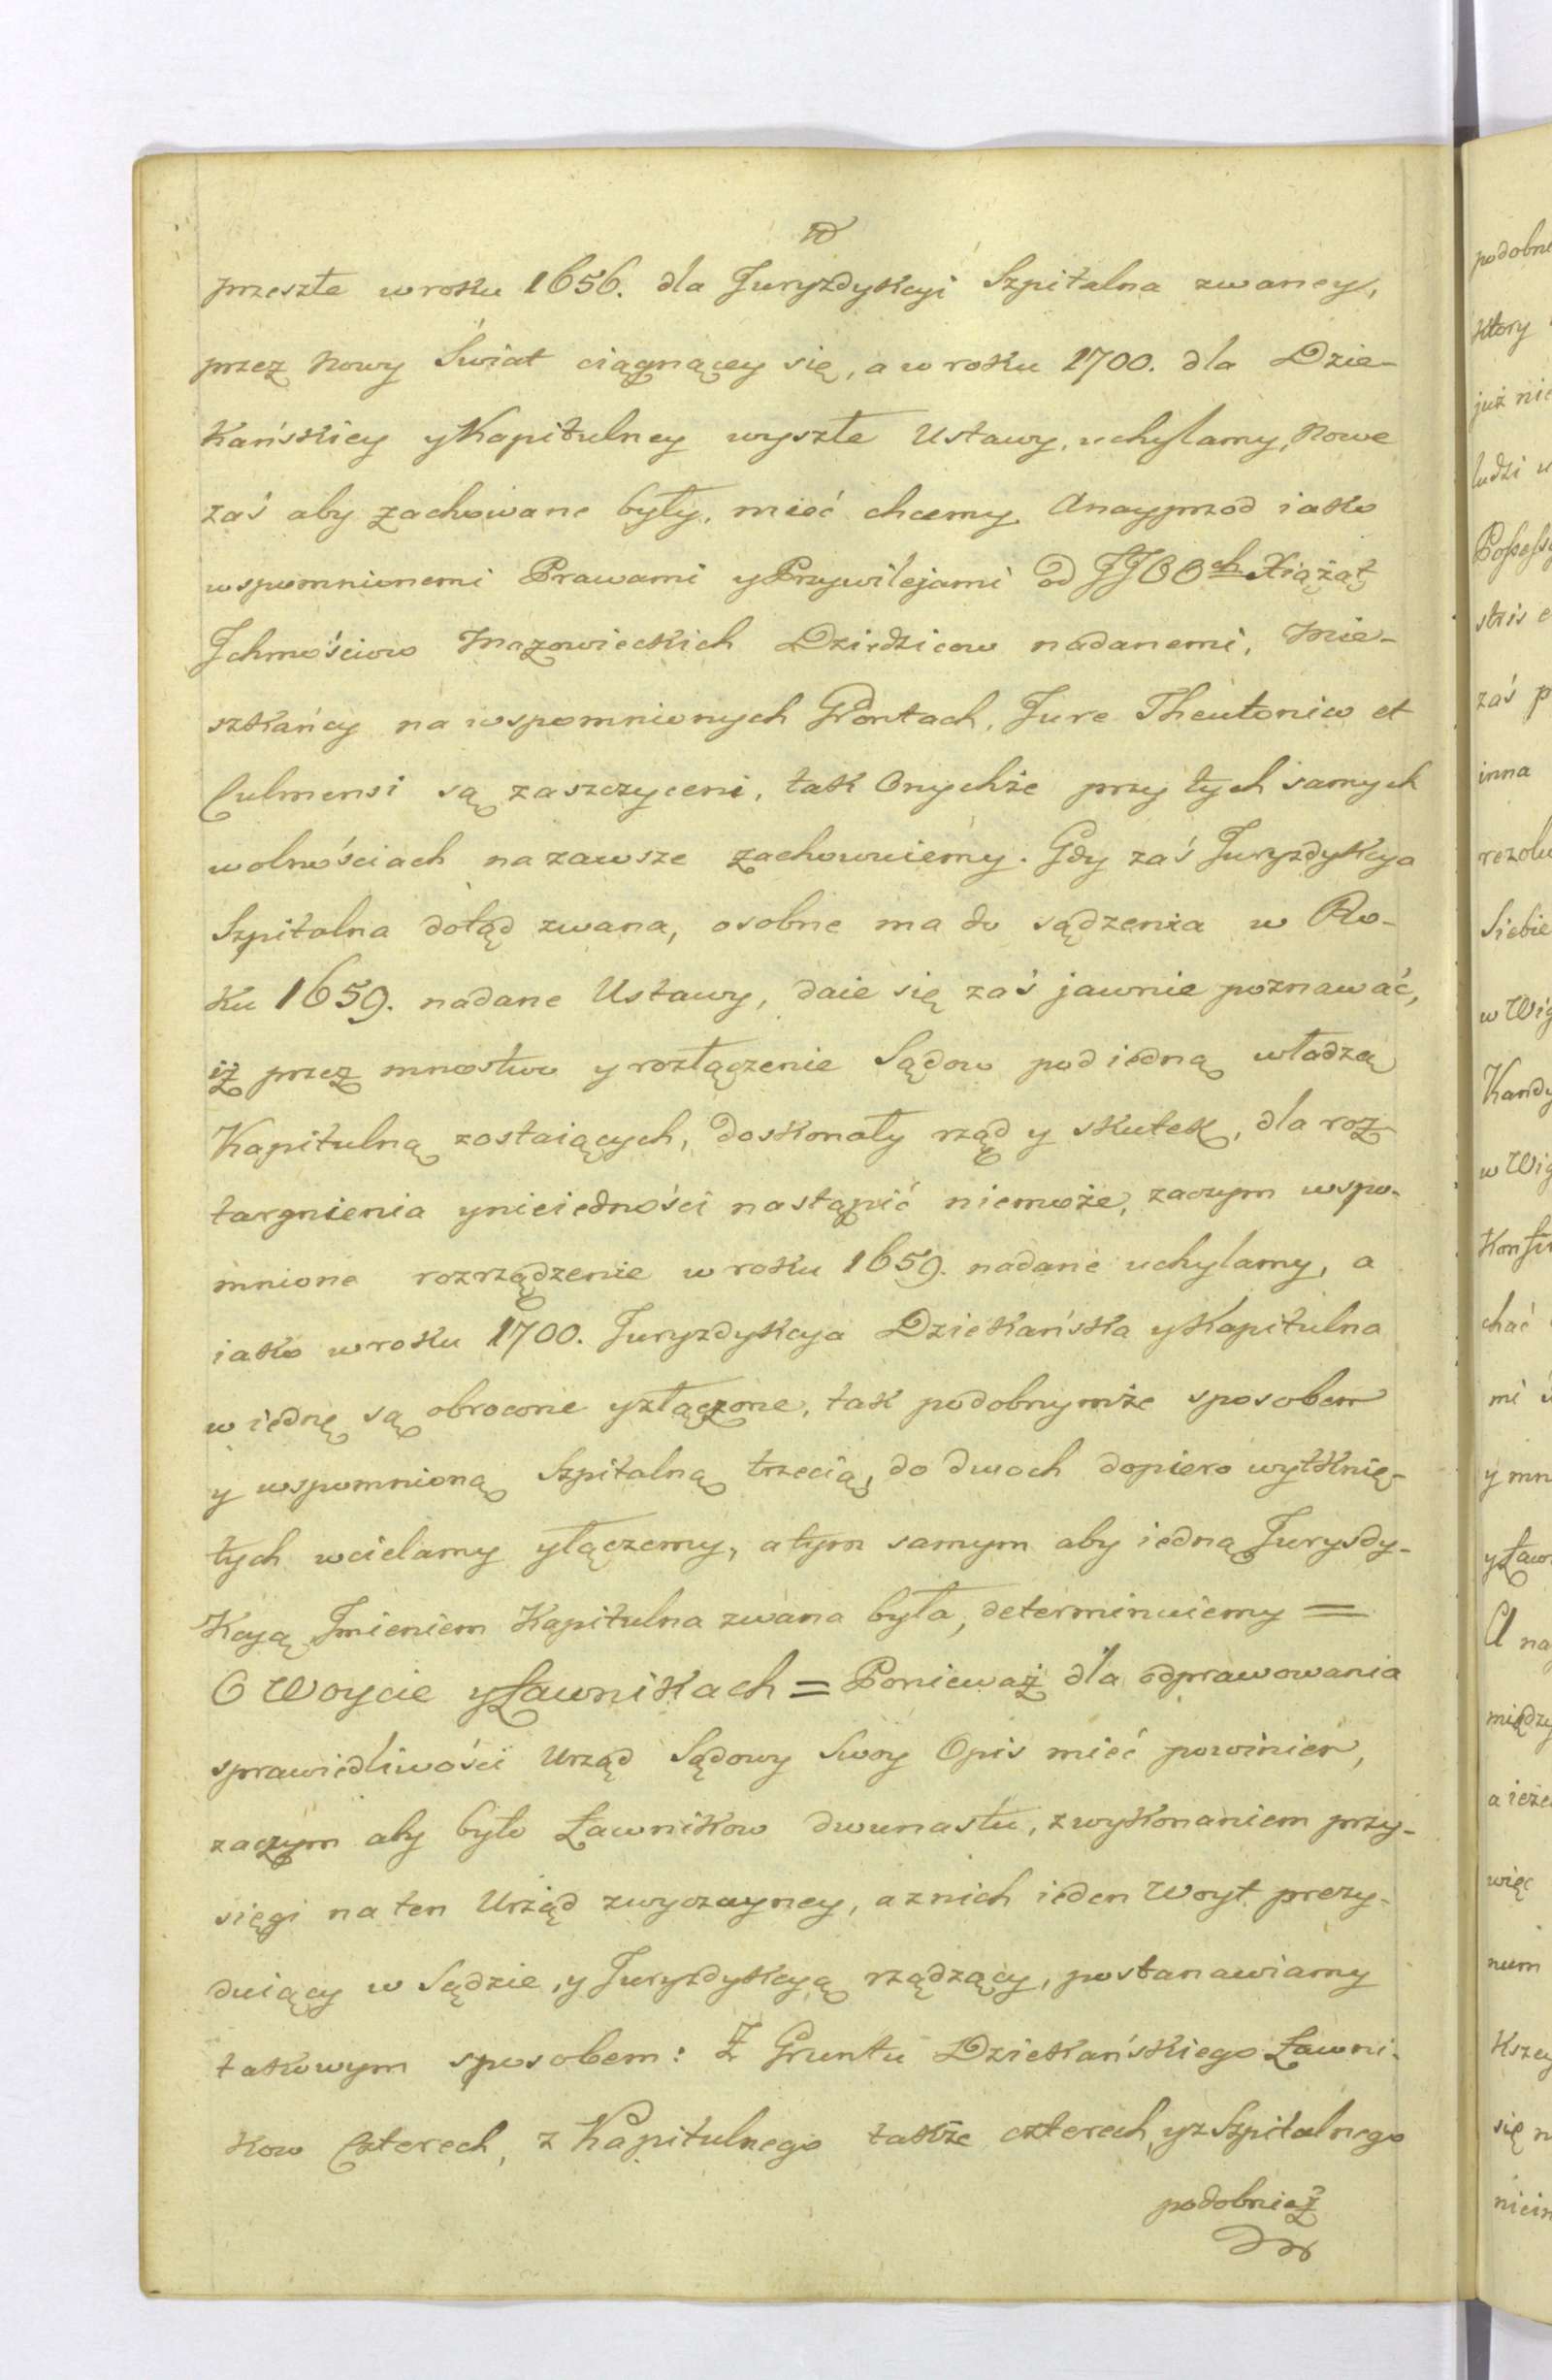 przeszłe w roku 1656. dla Juryzdykcyi Szpitalna zwaney,
przez nowy Świat ciągnącey się, a w roku 1700. dla Dzie-
kańskiey y Kapitulney wyszłe Ustawy, uchylamy, Nowe
zaś aby zachowane były, mieć chcemy. Anayprzod iako
wspomnionemi Prawami y Przywilejami od JJOOch Xiążąt
Jchmościow Mazowieckich Dziedzicow nadanemi, Mie-
szkańcy na wspomnionych Grontach, Jure Theutonico et
Culmensi są zaszczyceni, tak Onychże przy tych samych
wolnościach nazawsze zachowuiemy. Gdy zaś Juryzdykcya
Szpitalna dotąd zwana, osobne ma do sądzenia w Ro-
ku 1659. nadane Ustawy, daie się zaś jawnie poznawać,
iż przez mnostwo y rozłączenie Sądow pod iedną władzą
Kapitulną zostaiących, doskonały rząd y skutek, dla roz-
targnienia y nieiedności nastąpić niemoże, zaczym wspo-
mnione rozrządzenie w roku 1659. nadane uchylamy, a
iako w roku 1700. Juryzdykcya Dziekańska y Kapitulna
w iednę są obrocone y złączone, tak podobnymże sposobem
y wspomnioną Szpitalną trzecią, do dwoch dopiero wytknię-
tych wcielamy y łączemy, a tym samym aby iedną Jurysdy-
kcyą Jmieniem Kapitulna zwana była, determinuiemy =
O Woycie y Ławnikach = Ponieważ dla odprawowania
sprawiedliwości Urząd Sądowy Swoy Opis mieć powinien,
zaczym aby było Ławnikow dwunastu, z wykonaniem przy-
sięgi na ten Urząd zwyczayney, a z nich ieden Woyt prezy-
duiący w Sądzie, y Juryzdykcyą rządzący, postanawiamy
takowym sposobem: Z Gruntu Dziekańskiego Ławni-
kow Czterech, z Kapitulnego także czterech, y z Szpitalnego
podobnież
podobne
ktory
już nie
ludzi
zaś p
inna
rezolu
Siebie
w Wig
Kandy
w Wig
chać
mi
y mn
y Ław
A na
między
a ieże
więc
num
kszey
się n